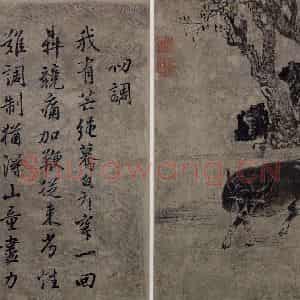 初調
我有芒繩驀鼻穿一回
犇競痛加鞭從來劣性
難調制猶得山童盡力
Shufawang.CN